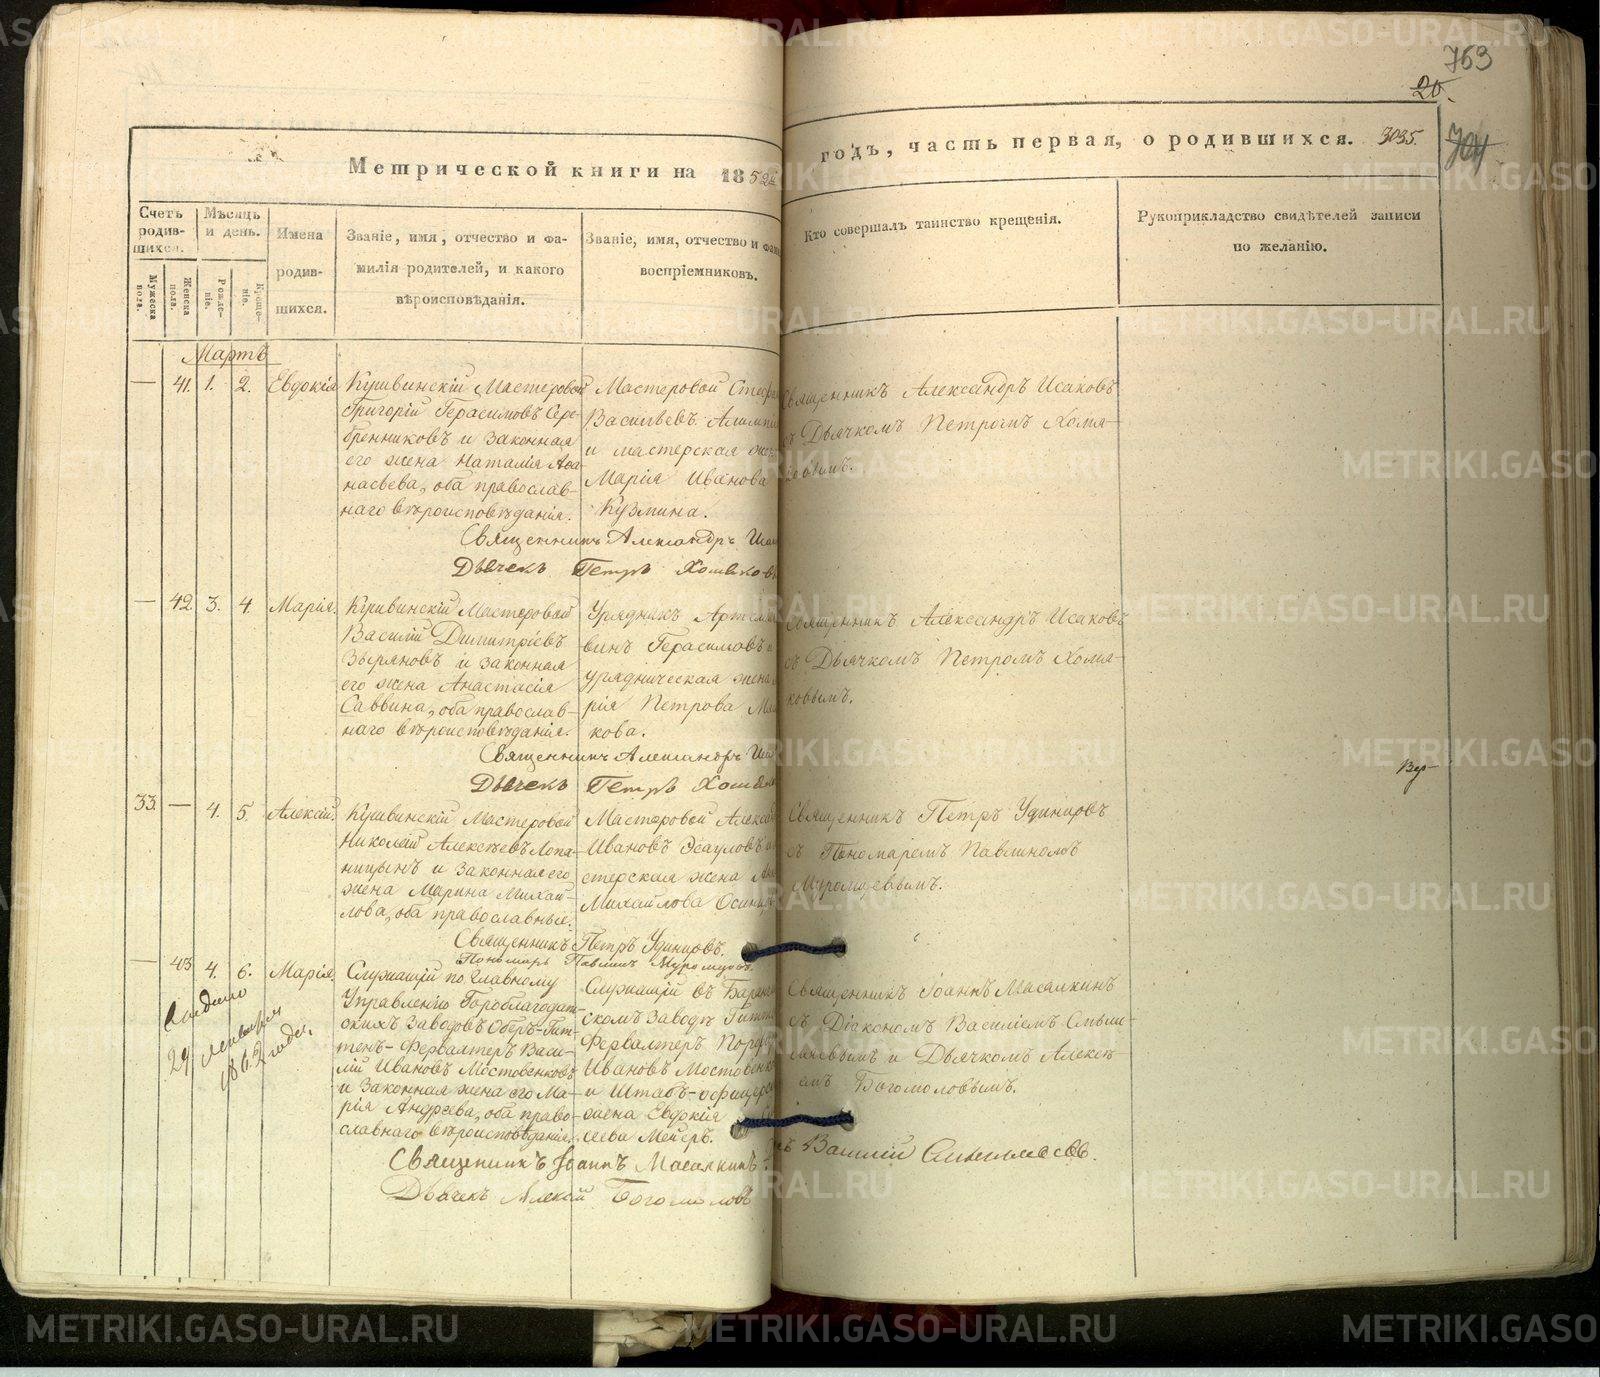 763
20.
Метрической книги на 1852й
годъ, часть первая, о родившихся. 3035.
704
Счетъ родившихся.
Мужеска пола.
Женска пола.
Мѣсяцъ и день.
Рожденіе.
Крещеніе.
Имена родившихся.
Званіе, имя, отчество и фамилія родителей, и какого вѣроисповѣданія.
Званіе, имя, отчество и
воспріемниковъ.
Кто совершалъ таинство крещенія.
Рукоприкладство свидѣтелей записи по желанію.
Мартъ
— 41. 1. 2. Евдокія
Кушвинскій Мастеровой
Григорій Герасимовъ Сере-
бренниковъ и законная
его жена Наталія Афа-
насьева, оба православ-
наго вѣроисповѣданія.
Мастеровой
Васильевъ
и мастерская
Марія Иванова
Кузмина.
Священникъ Александръ Исаковъ
съ Дьячкомъ Петромъ Хомя-
ковымъ.
Священникъ Александръ
Дьячекъ Петръ Хомяковъ
— 42. 3. 4. Марія.
Кушвинскій Мастеровой
Василій Димитріевъ
Зыряновъ и законная
его жена Анастасія
Саввина, оба православ-
наго вѣроисповѣданія.
Урядникъ
винъ Герасимовъ
урядническая жена
рія Петрова
кова.
Священникъ Александръ Исаковъ
съ Дьячкомъ Петромъ Хомя-
ковымъ.
Священникъ Александръ
Дьячекъ Петръ
33. — 4. 5. Алексій.
Кушвинскій Мастеровой
Николай Алексѣевъ Лопа-
ницынъ и законная его
жена Марина Михай-
лова, оба православные.
Мастеровой
Ивановъ Эсауловъ
стерская жена
Михайлова
Священникъ Петръ Удинцовъ
съ Пономаремъ Павлиномъ
Муромцевымъ.
Священникъ Петръ Удинцовъ.
Пономарь Павлинъ Муромцовъ.
— 43 4. 6. Марія.
Служащій по Главному
Управленію Гороблагодат-
скихъ Заводовъ Оберъ-Гит-
тенъ-Фервалтеръ Васи-
лій Ивановъ Мостовенковъ
и законная жена его Ма-
рія Андреева, оба право-
славнаго вѣроисповѣданія.
Служащій въ
скомъ Заводѣ
Фервалтеръ
Ивановъ
и Штабъ-офицерская
жена Евдокія
Мейеръ.
Священникъ Іоаннъ Масалкинъ
съ Діакономъ Василіемъ
и Дьячкомъ Алексѣ-
емъ Богомоловымъ.
29
1862 года.
Священникъ Іоаннъ Масалкинъ.
Василій
Дьячекъ Алексій Богомоловъ